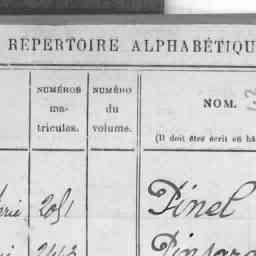 REPERTOIRE ALPHABÉTIQU
NUMÉROS
ma-
tricules.
NUMÉRO
du
volume.
NOM.
(Il doit être écrit en bâ
erie 2051 Pinel